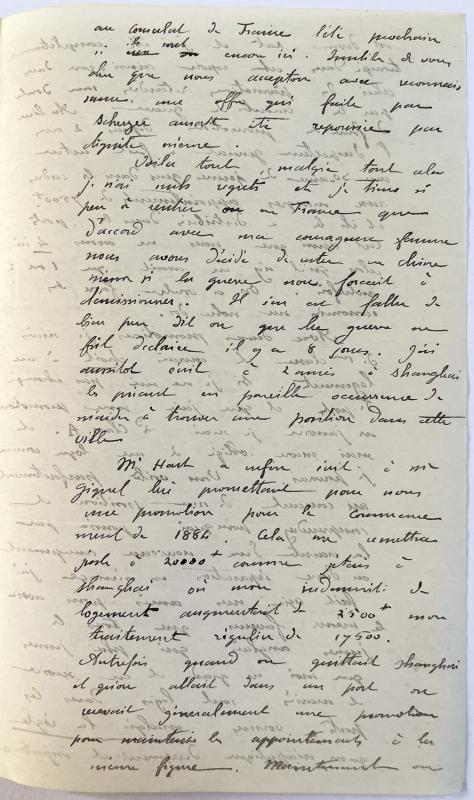 au consulat de France l'été prochain
ils sont encore ici. Inutile de vous
dire que nous acceptons avec reconnais
sance une offre qui faite par
Scherzer aurait été repoussée par
dignité même.
Voilà tout, malgré tout cela
je n'ai nuls regrets et je tiens si
peu à rentrer en France que
d'accord avec ma courageuse femme
nous avons décidé de rester en Chine
même si la guerre nous forçait à
démissionner. Il s'en est fallu de
bien peu dit on que la guerre ne
fût déclarée il y a 8 jours. J'ai
aussitôt écrit à 2 amis à Shanghai
les priant en pareille occurrence de
m'aider à trouver une position dans cette
ville
Mr Hart a enfin écrit à Mr
Giquel lui promettant pour nous
une promotion pour le commence
ment de 1884. Cela me remettra
juste à 20000 f comme j'étais à
Shanghai où mon indemnité de
logement augmentait de 2500 f mon
traitement régulier de 17500.
Autrefois quand on quittait Shanghai
et qu'on allait dans un port on
recevait généralement une promotion
pour maintenir les appointements à la
même figure. Maintenant on